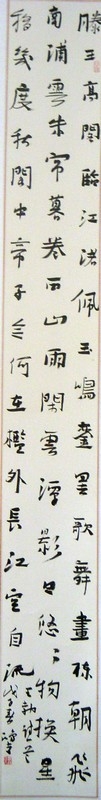 滕王高閣臨江渚佩玉鳴鑾罷歌舞畫棟朝飛
南浦雲朱帘暮卷西山雨閑雲潭影日悠〻物換星
移幾度秋閣中帝子今何在檻外長江空自流
王勃詩
戊子